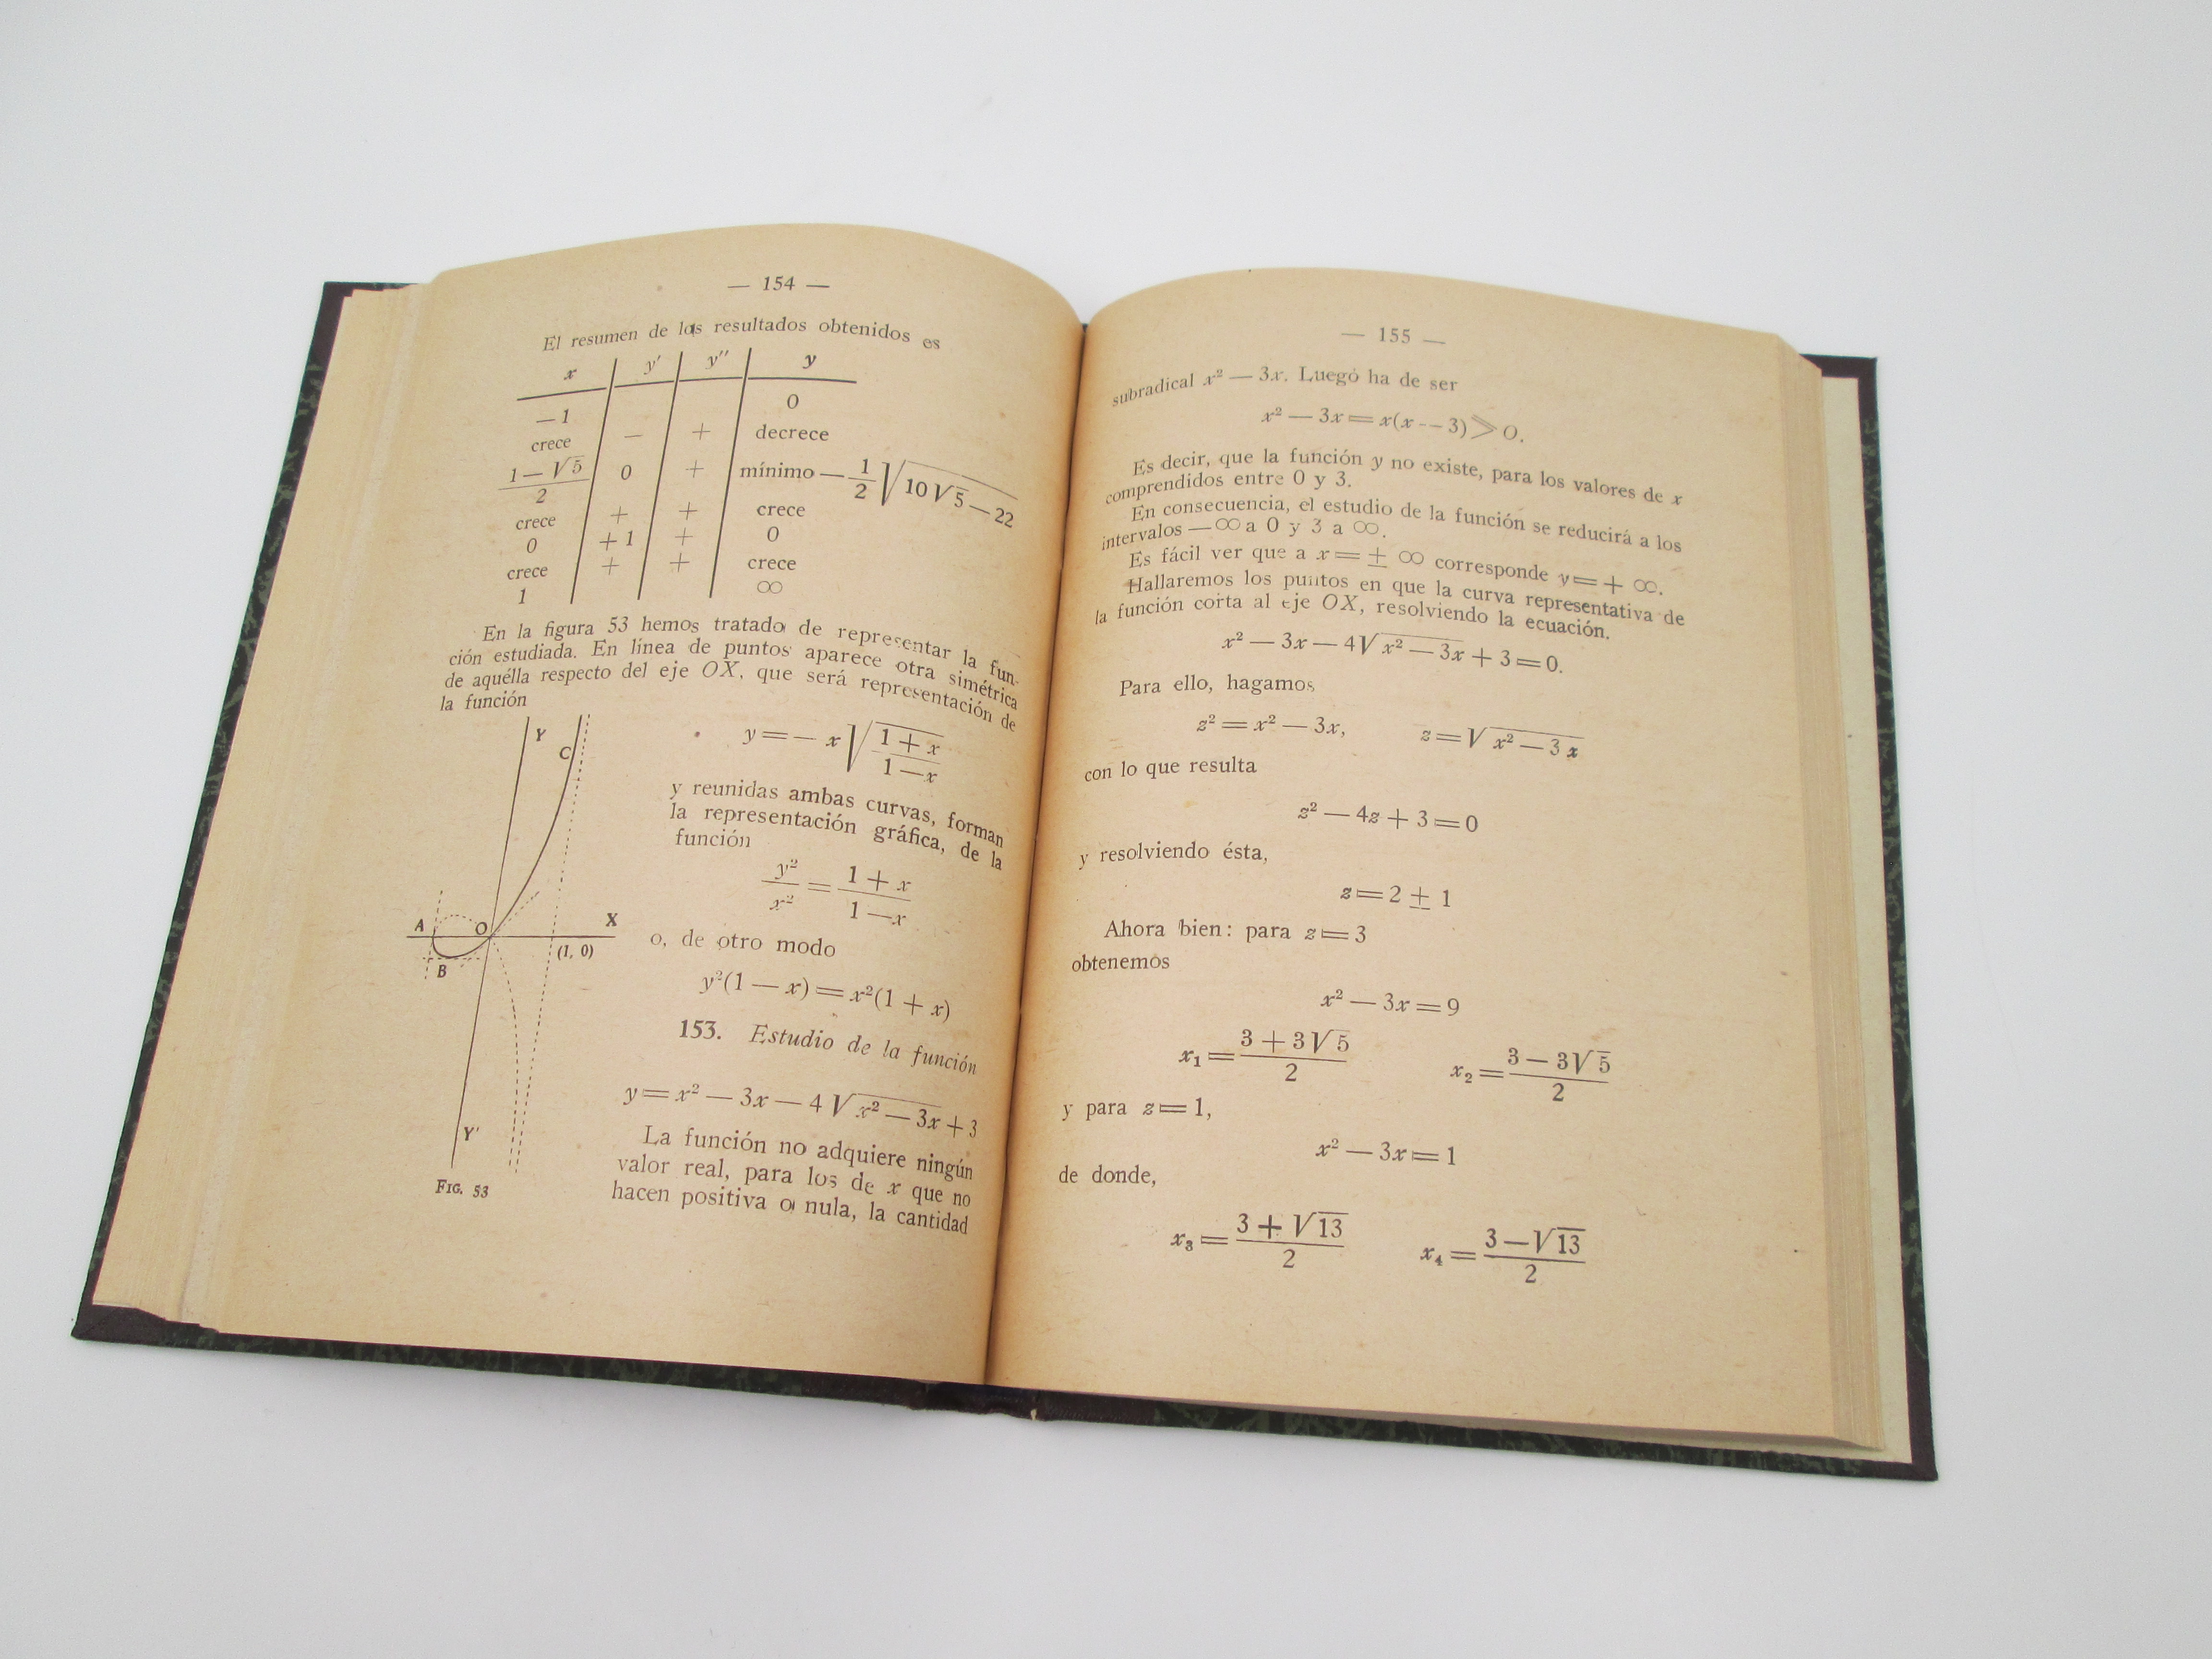 — 154 —
El resumen de los resultados obtenidos es
x y′ y″ y
— 1 0
crece — + decrece
(1 — √5)/2 0 + mínimo — 1/2 √(10√5 — 22)
crece + + crece
0 + 1 + 0
crece + + crece
1 ∞
En la figura 53 hemos tratado de representar la fun-
ción estudiada. En línea de puntos aparece otra simétrica
de aquélla respecto del eje OX, que será representación de
la función
y = — x √((1 + x)/(1 — x))
y reunidas ambas curvas, forman
la representación gráfica, de la
función
y²/x² = (1 + x)/(1 — x)
o, de otro modo
y²(1 — x) = x²(1 + x)
153. Estudio de la función
y = x² — 3x — 4 √(x² — 3x) + 3
La función no adquiere ningún
valor real, para los de x que no
hacen positiva o nula, la cantidad
Y
C
A
O
X
B
(1, 0)
Y′
FIG. 53
— 155 —
subradical x² — 3x. Luegó ha de ser
x² — 3x = x(x -- 3) ⩾ 0.
Es decir, que la función y no existe, para los valores de x
comprendidos entre 0 y 3.
En consecuencia, el estudio de la función se reducirá a los
intervalos — ∞ a 0 y 3 a ∞.
Es fácil ver que a x = ± ∞ corresponde y = + ∞.
Hallaremos los puntos en que la curva representativa de
la función corta al eje OX, resolviendo la ecuación.
x² — 3x — 4√(x² — 3x) + 3 = 0.
Para ello, hagamos
z² = x² — 3x, z = √(x² — 3x)
con lo que resulta
z² — 4z + 3 = 0
y resolviendo ésta,
z = 2 ± 1
Ahora bien: para z = 3
obtenemos
x² — 3x = 9
x₁ = (3 + 3√5)/2 x₂ = (3 — 3√5)/2
y para z = 1,
x² — 3x = 1
de donde,
x₃ = (3 + √13)/2 x₄ = (3 — √13)/2